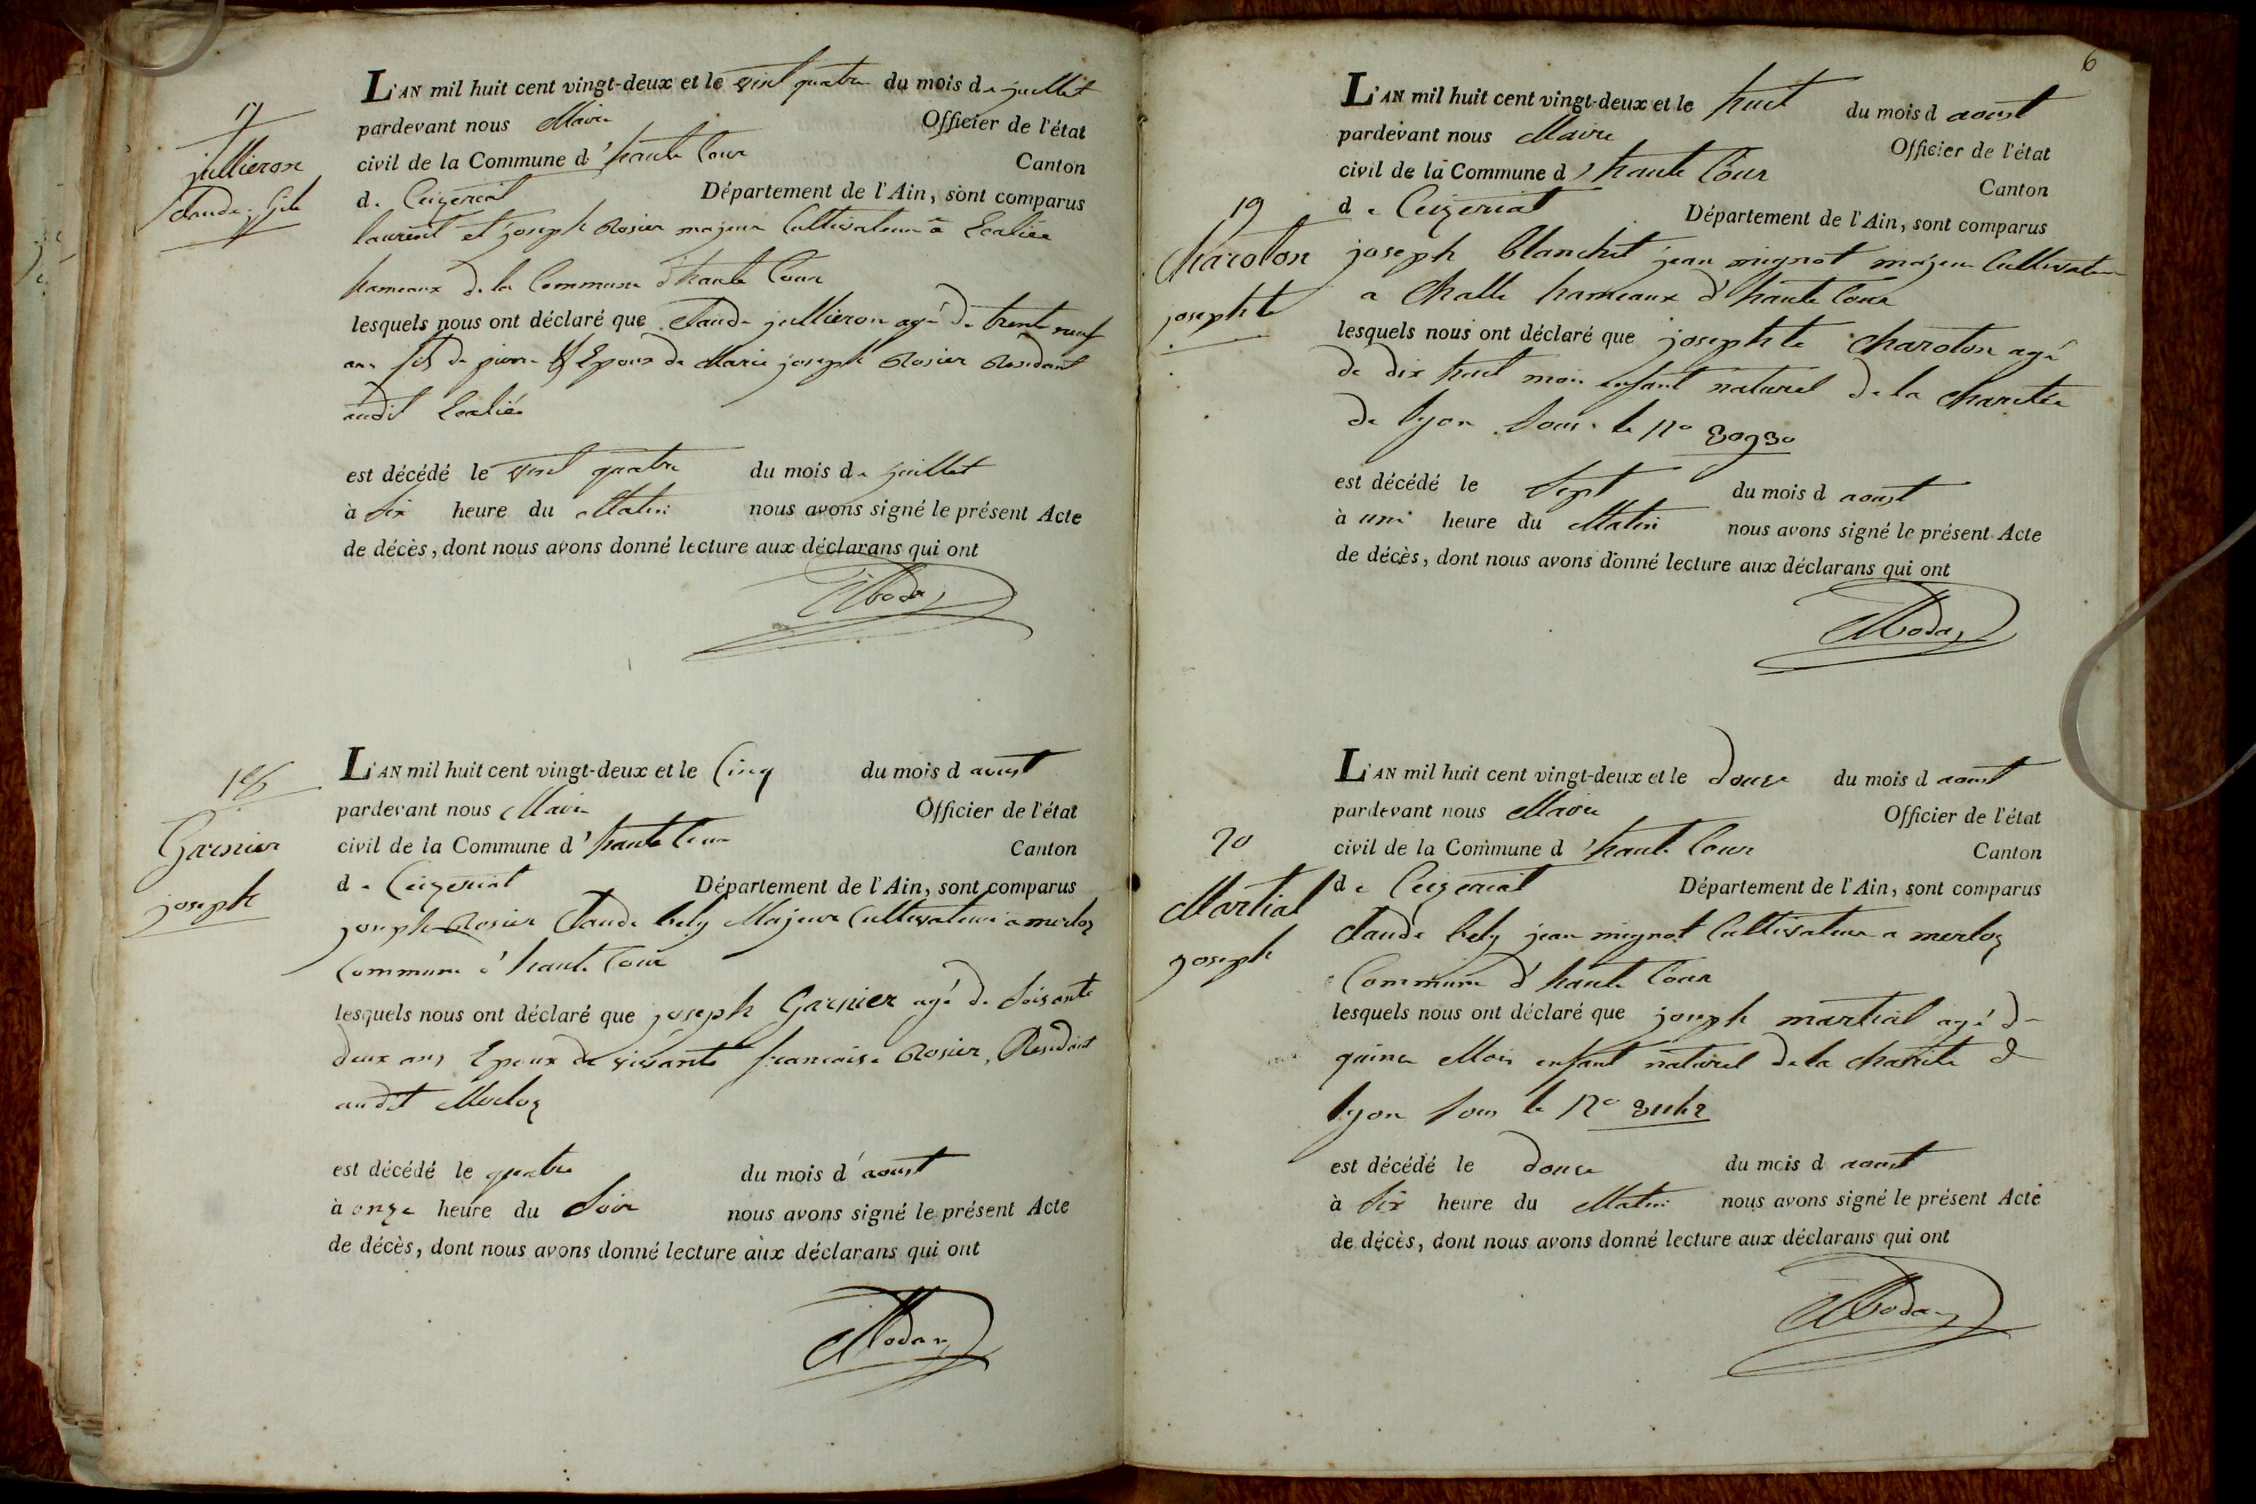 17
jullieron
Claude
L'AN mil huit cent vingt-deux et le vint quatre du mois de juillet
pardevant nous Maire Officier de l'état
civil de la Commune d'haute Cour Canton
de Ceizeriat Département de l'Ain, sont comparus
laurent et joseph Rosier majeur Cultivateur a
hameaux de la Commune d'haute Cour
lesquels nous ont déclaré que Claude jullieron agé de trente neuf
ans fils de Epoux de Marie joseph Rosier Residant
audit
est décédé le vint quatre du mois de juillet
à six heure du Matin nous avons signé le présent Acte
de décès, dont nous avons donné lecture aux déclarans qui ont
18
Garnier
joseph
L'AN mil huit cent vingt-deux et le Cinq du mois d aoust
pardevant nous Maire Officier de l'état
civil de la Commune d'haute Cour Canton
de Ceizeriat Département de l'Ain, sont comparus
joseph Rosier Claude bely Majeur Cultivateur a merloz
Commune d'haute Cour
lesquels nous ont déclaré que joseph Garnier agé de soisante
deux ans Epoux de vivante francoise Rosier, Residant
audit Merloz
est décédé le quatre du mois d'aoust
à onze heure du Soir nous avons signé le présent Acte
de décès, dont nous avons donné lecture aux déclarans qui ont
6
19
Charoton
josephte
L'AN mil huit cent vingt-deux et le huit du mois d aoust
pardevant nous Maire Officier de l'état
civil de la Commune d'haute Cour Canton
de Ceizeriat Département de l'Ain, sont comparus
joseph blanchet jean mignot majeur Cultivateur
a Challe hameaux d'haute Cour
lesquels nous ont déclaré que josephte Charoton agé
de dix huit mois enfant naturel de la charitée
de lyon sous le No 30930
est décédé le Sept du mois d aoust
à une heure du Matin nous avons signé le présent Acte
de décès, dont nous avons donné lecture aux déclarans qui ont
20
Martial
joseph
L'AN mil huit cent vingt-deux et le douse du mois d aoust
pardevant nous Maire Officier de l'état
civil de la Commune d'haute Cour Canton
de Ceizeriat Département de l'Ain, sont comparus
Claude bely jean mignot Cultivateur a merloz
Commune d'haute Cour
lesquels nous ont déclaré que joseph martial agé de
quince Mois enfant naturel de la charité de
lyon sous le No
est décédé le douse du mois d aoust
à six heure du Matin nous avons signé le présent Acte
de décès, dont nous avons donné lecture aux déclarans qui ont